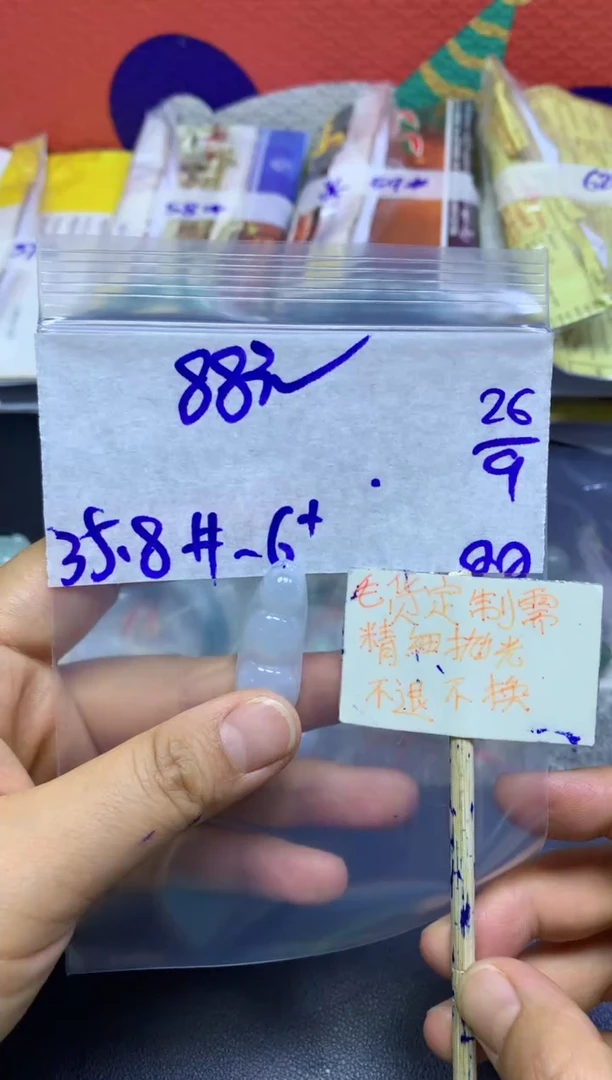 88元
26
9
35.8#-6+
毛货定制需
精细抛光
不退不换
58#